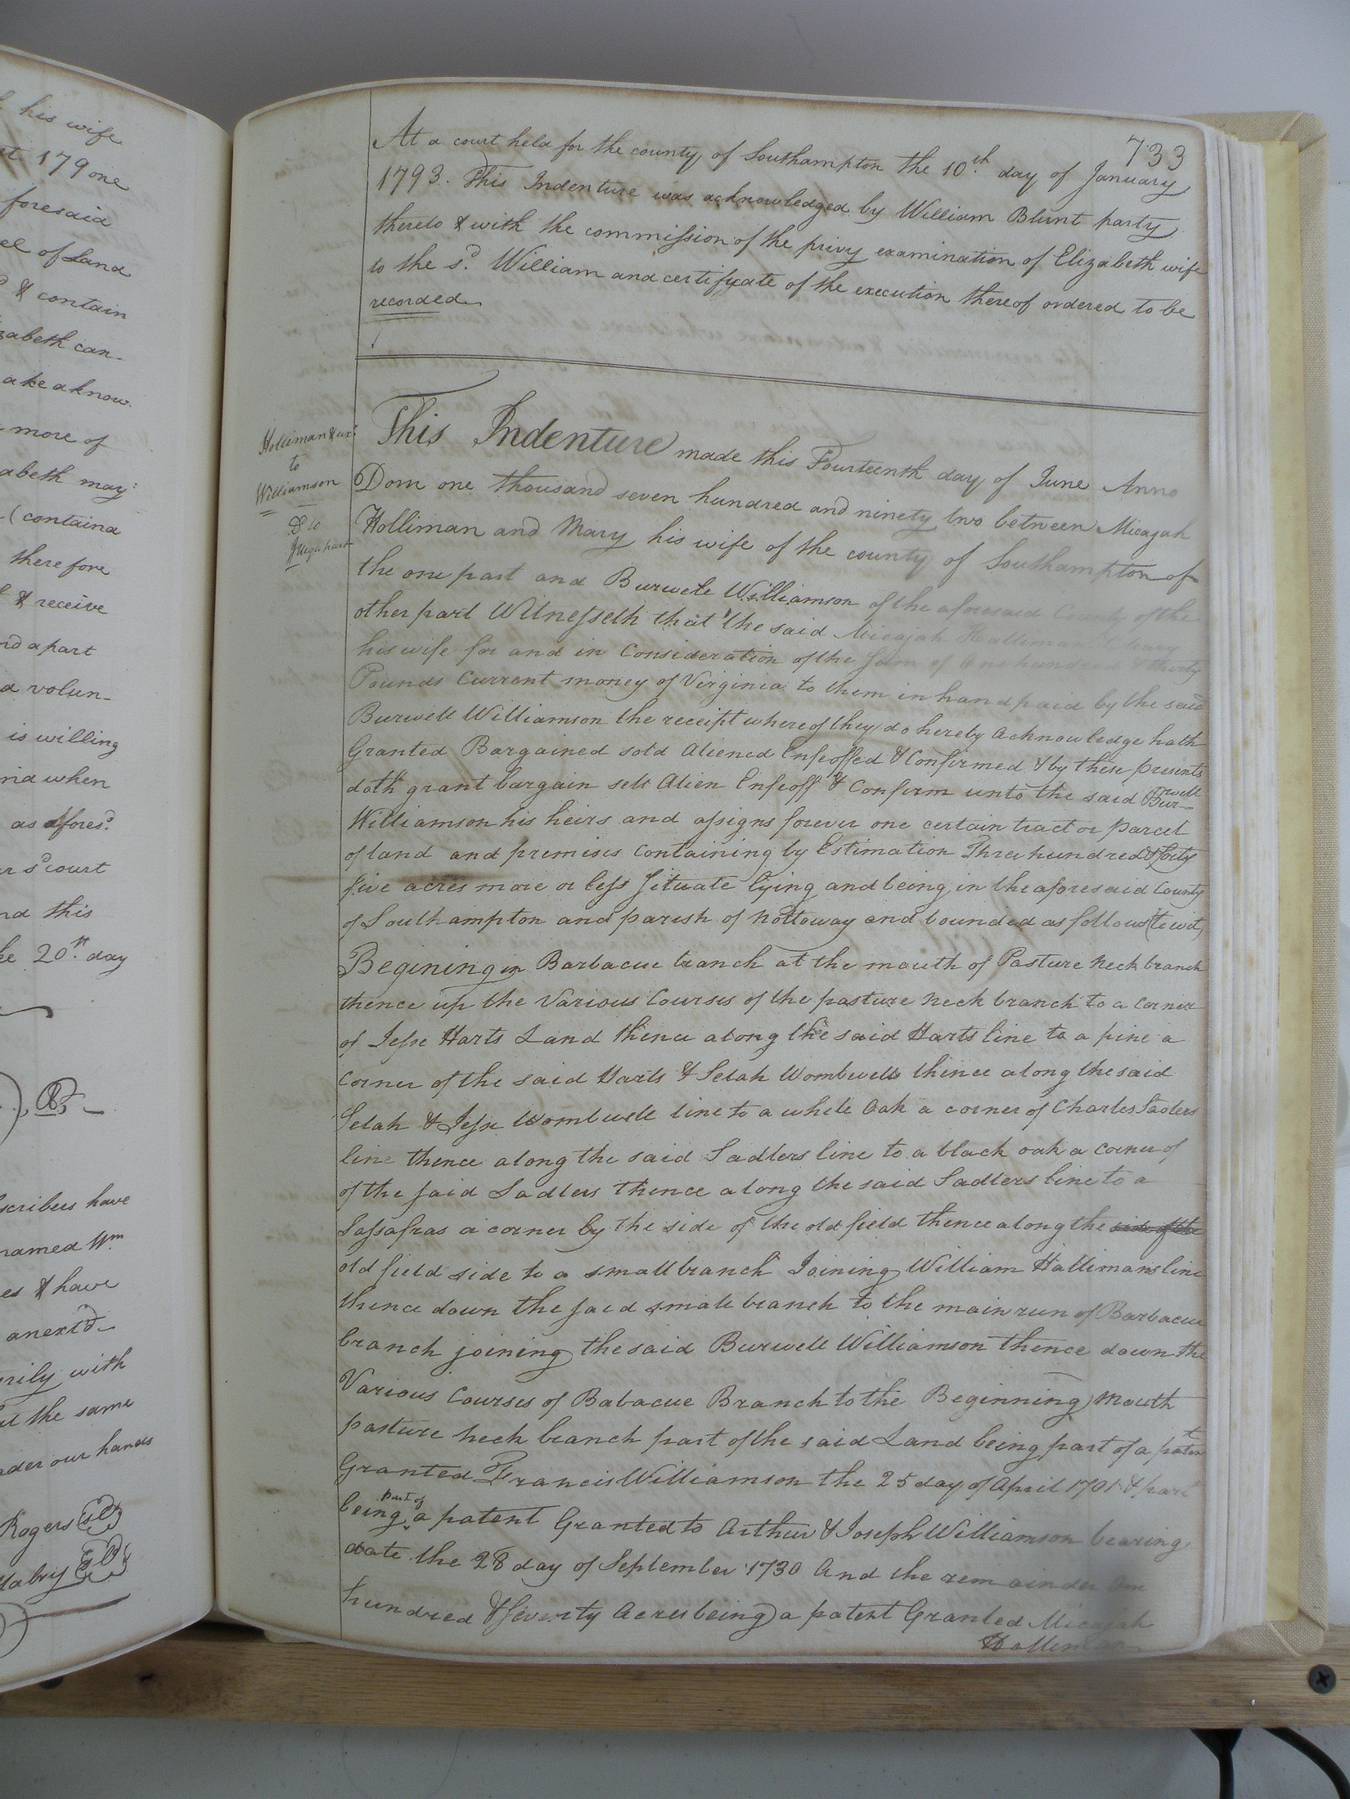 his wife
179one
foresaid
el of Land
& contain
zabeth can-
ake aknow.
more of
abeth may
(containd
therefore
& receive
nd apart
a volun-
is willing
nd when
as afores.d
r s.d court
nd this
20.th day
scribers have
named Wm
es & have
anex'd
rily with
the same
nder our hands
Rogers
Mabry
733
At a court held for the county of Southampton the 10.th day of January
1793. This Indenture was acknowledged by William Blunt party
thereto & with the commission of the privy examination of Elizabeth wife
to the s.d William and certificate of the execution thereof ordered to be
recorded
Holliman & ux.r
to
Williamson
This Indenture made this Fourteenth day of June Anno
Dom one thousand seven hundred and ninety two between Micajah
Holliman and Mary his wife of the county of Southampton of
the one part and Burwell Williamson of the aforesaid County of the
other part Witnesseth that the said Micajah Holliman & Mary
his wife for and in Consideration of the Sum of One hundred thirty
Pounds Current money of Virginia to them in hand paid by the said
Burwell Williamson the receipt whereof they do hereby Acknowledge hath
Granted Bargained sold Aliened Enfeoffed & Confirmed & by these presents
doth grant bargain sell Alien Enfeoff & Confirm unto the said Burwell
Williamson his heirs and assigns forever one certain tract or parcel
of land and premises Containing by Estimation Three hundred & forty
five acres more or less situate lying and being in the aforesaid County
of Southampton and parish of Nottoway and bounded as follows (to wit)
Begining in Barbacue branch at the mouth of Pasture neck branch
thence up the Various Courses of the pasture neck branch to a Corner
of Jesse Harts Land thence along the said Harts line to a pine a
Corner of the said Harts & Selah Wombwells thence along the said
Selah & Jesse Wombwell line to a white Oak a corner of Charles Sadlers
line thence along the said Sadlers line to a black oak a Corner of
of the said Sadlers thence along the said Sadlers line to a
Sassafras a corner by the side of the old field thence along the side of the
old field side to a small branch Joining William Hallimans line
thence down the said small branch to the main run of Barbacue
branch joining the said Burwell Williamson thence down the
Various Courses of Babacue Branch to the Beginning Mouth
pasture neck branch part of the said Land being part of a patent
Granted Francis Williamson the 25 day of April 1701 & part
being part of a patent Granted to Arthur & Joseph Williamson bearing
date the 28 day of September 1730 And the remainder One
hundred & seventy Acres being a patent Granted Micajah
Holliman